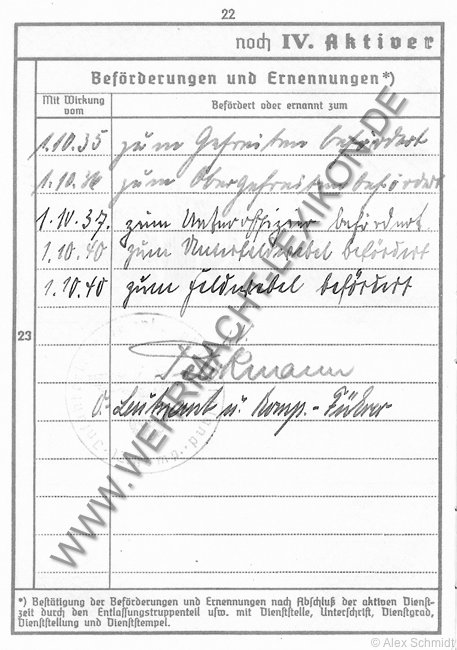 22
noch IV. Aktiver
Beförderungen und Ernennungen*)
Mit Wirkung vom
Befördert oder ernannt zum
1.10.35 zum Gefreiten befördert
1.10.36 zum Obergefreiten befördert
1.10.37. zum Unteroffizier befördert
1.10.40 zum Unterfeldwebel befördert
1.10.40 zum Feldwebel befördert
23
Leutnant u. Komp.-Führer
WWW.WEHRMACHT-LEXIKON.DE
*) Bestätigung der Beförderungen und Ernennungen nach Abschluß der aktiven Dienst-
zeit durch den Entlassungstruppenteil usw. mit Dienststelle, Unterschrift, Dienstgrad,
Dienststellung und Dienststempel.
© Alex Schmidt